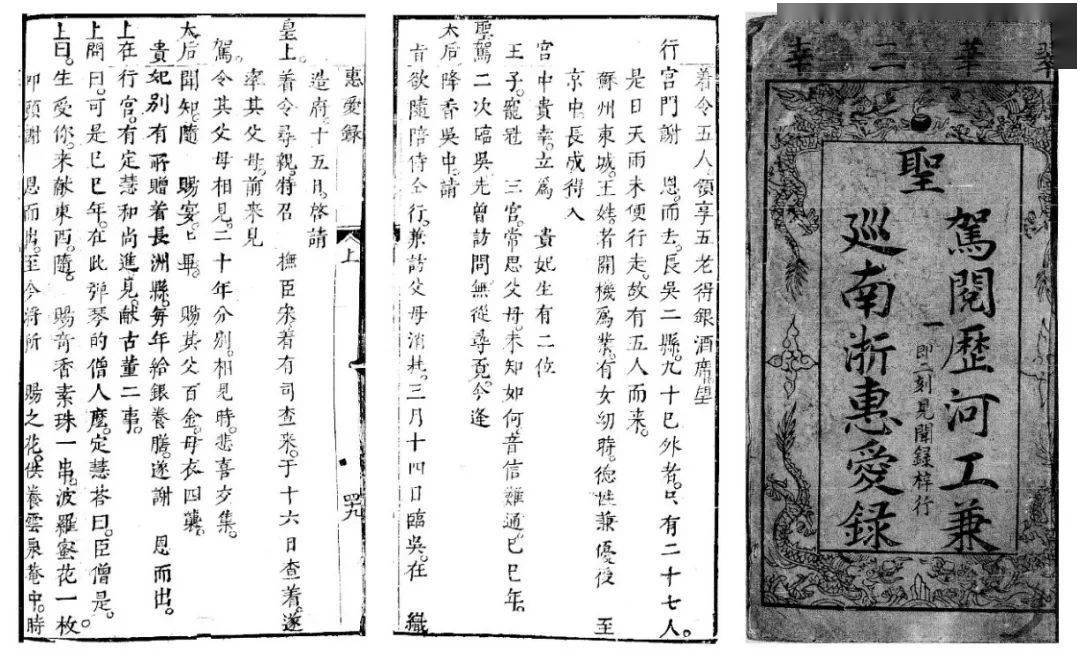 翠華三幸
聖
駕閱歷河工兼
一即二刻見聞錄梓行
巡南浙惠愛錄
着令五人領享五老得銀酒席望
行宮門謝　恩。而去。長吳二縣。九十已外者。只有二十七人。
是日天雨未便行走。故有五人而來。
蘇州東城。王姓者。開機爲業。有女幼時。德性兼優。後　至
京中。長成得入
宮中貴幸。立爲　貴妃生有二位
王子。寵冠　三宮。常思父母。未知如何。音信難通。己巳年。
聖駕二次臨吳。先曾訪問無從尋覓。今逢
太后降香吳中。請
旨欲隨陪侍仝行。兼訪父母消耗。三月十四日臨吳。在　織
惠愛錄　上　四九
造府。十五日。啓請
皇上。着令尋親。特召　撫臣宋。着有司查來。于十六日查着。遂
率其父母。前來見
駕。令其父母相見。二十年分別。相見時。悲喜交集。
太后聞知。隨　賜宴。已畢。　賜其父百金。母衣四襲。
貴妃別有所贈。着長洲縣。每年給銀養膳。遂謝　恩而出。
上在行宮。有定慧和尚進見。献古董二事。
上問曰。可是己巳年。在此彈琴的僧人麼。定慧答曰。臣僧是。
上曰。生受你。來献東西。隨。　賜奇香素珠一串。波羅蜜花一枚。
叩頭謝　恩而出。至今將所　賜之花。供養雲泉菴中。時